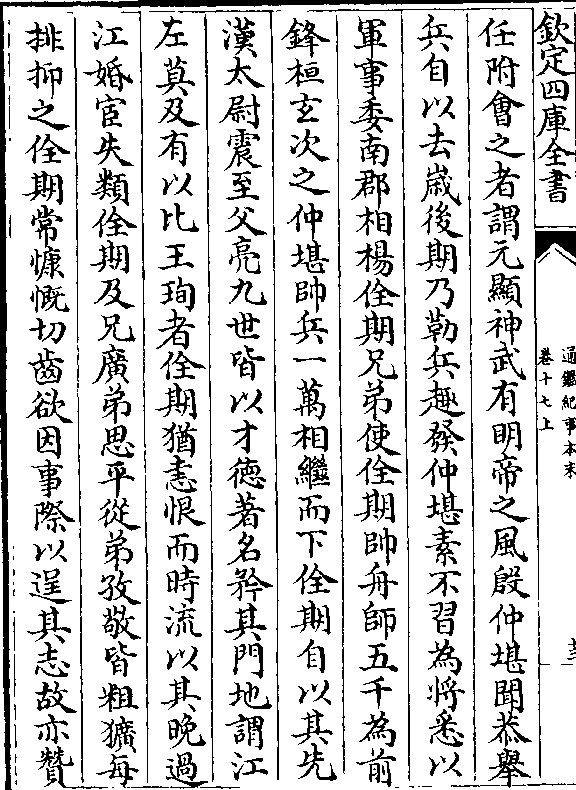 欽定四庫全書
通鑑紀事本末
卷十七上
任附會之者謂元顯神武有明帝之風殷仲堪聞恭舉
兵自以去嵗後期乃勒兵趣發仲堪素不習為將悉以
軍事委南郡相楊佺期兄弟使佺期帥舟師五千為前
鋒桓玄次之仲堪帥兵一萬相繼而下佺期自以其先
漢太尉震至父亮九世皆以才徳著名矜其門地謂江
左莫及有以比王珣者佺期猶恚恨而時流以其晚過
江婚宦失類佺期及兄廣弟思平從弟孜敬皆粗獷每
排抑之佺期常慷慨切齒欲因事際以逞其志故亦贊